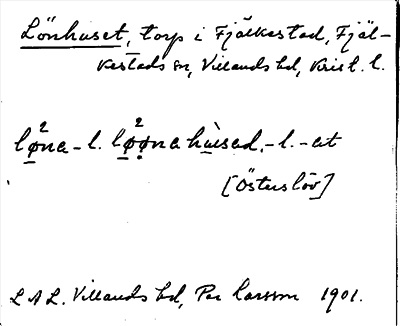 Lönhuset, torp i Fjälkestad, Fjäl-
kestads sn, Villands hd, Krist. l.
lø²na- l. lø²ø̣nahùsed, - l. -et
[Österslöv]
L A L. Villands hd, Per Larsson 1901.